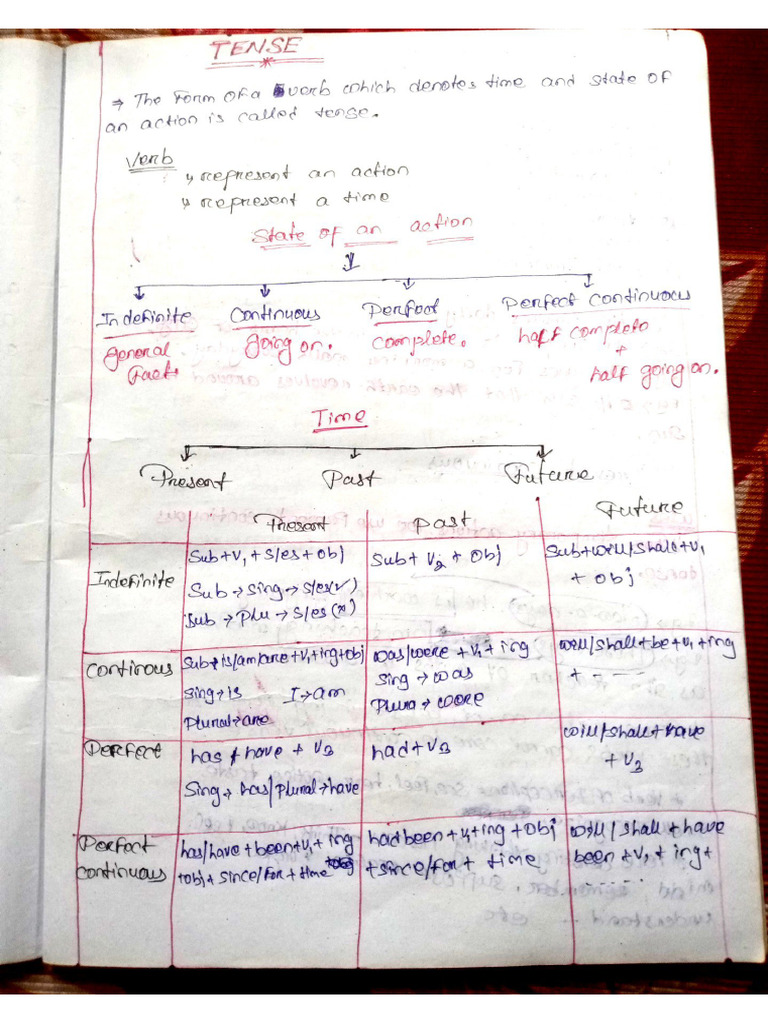 TENSE
→ The form of a verb which denotes time and state of
an action is called tense.
Verb
↳ represent an action
↳ represent a time
State of an action
Indefinite Continuous Perfect Perfect Continuous
general going on. complete. half complete
fact. +
half going on.
Time
Present Past Future
Present Past Future
Indefinite Sub+V₁+s/es+Obj Sub+V₂+Obj Sub+will/shall+V₁
Sub→Sing→s/es(✓) + obj
Sub→Plu→s/es(×)
Continous Sub→is/am/are+V₁+ing+obj was/were+V₁+ing will/shall+be+V₁+ing
Sing→is I→am Sing→was + - - - -
Plural→are Plural→were
Perfect has/have + V₃ had+V₃ will/shall+have
Sing→has/Plural→have + V₃
Perfect has/have+been+V₁+ing had been+V₁+ing+obj will/shall+have
continuous +obj+since/for+time +since/for+time been+V₁+ing+